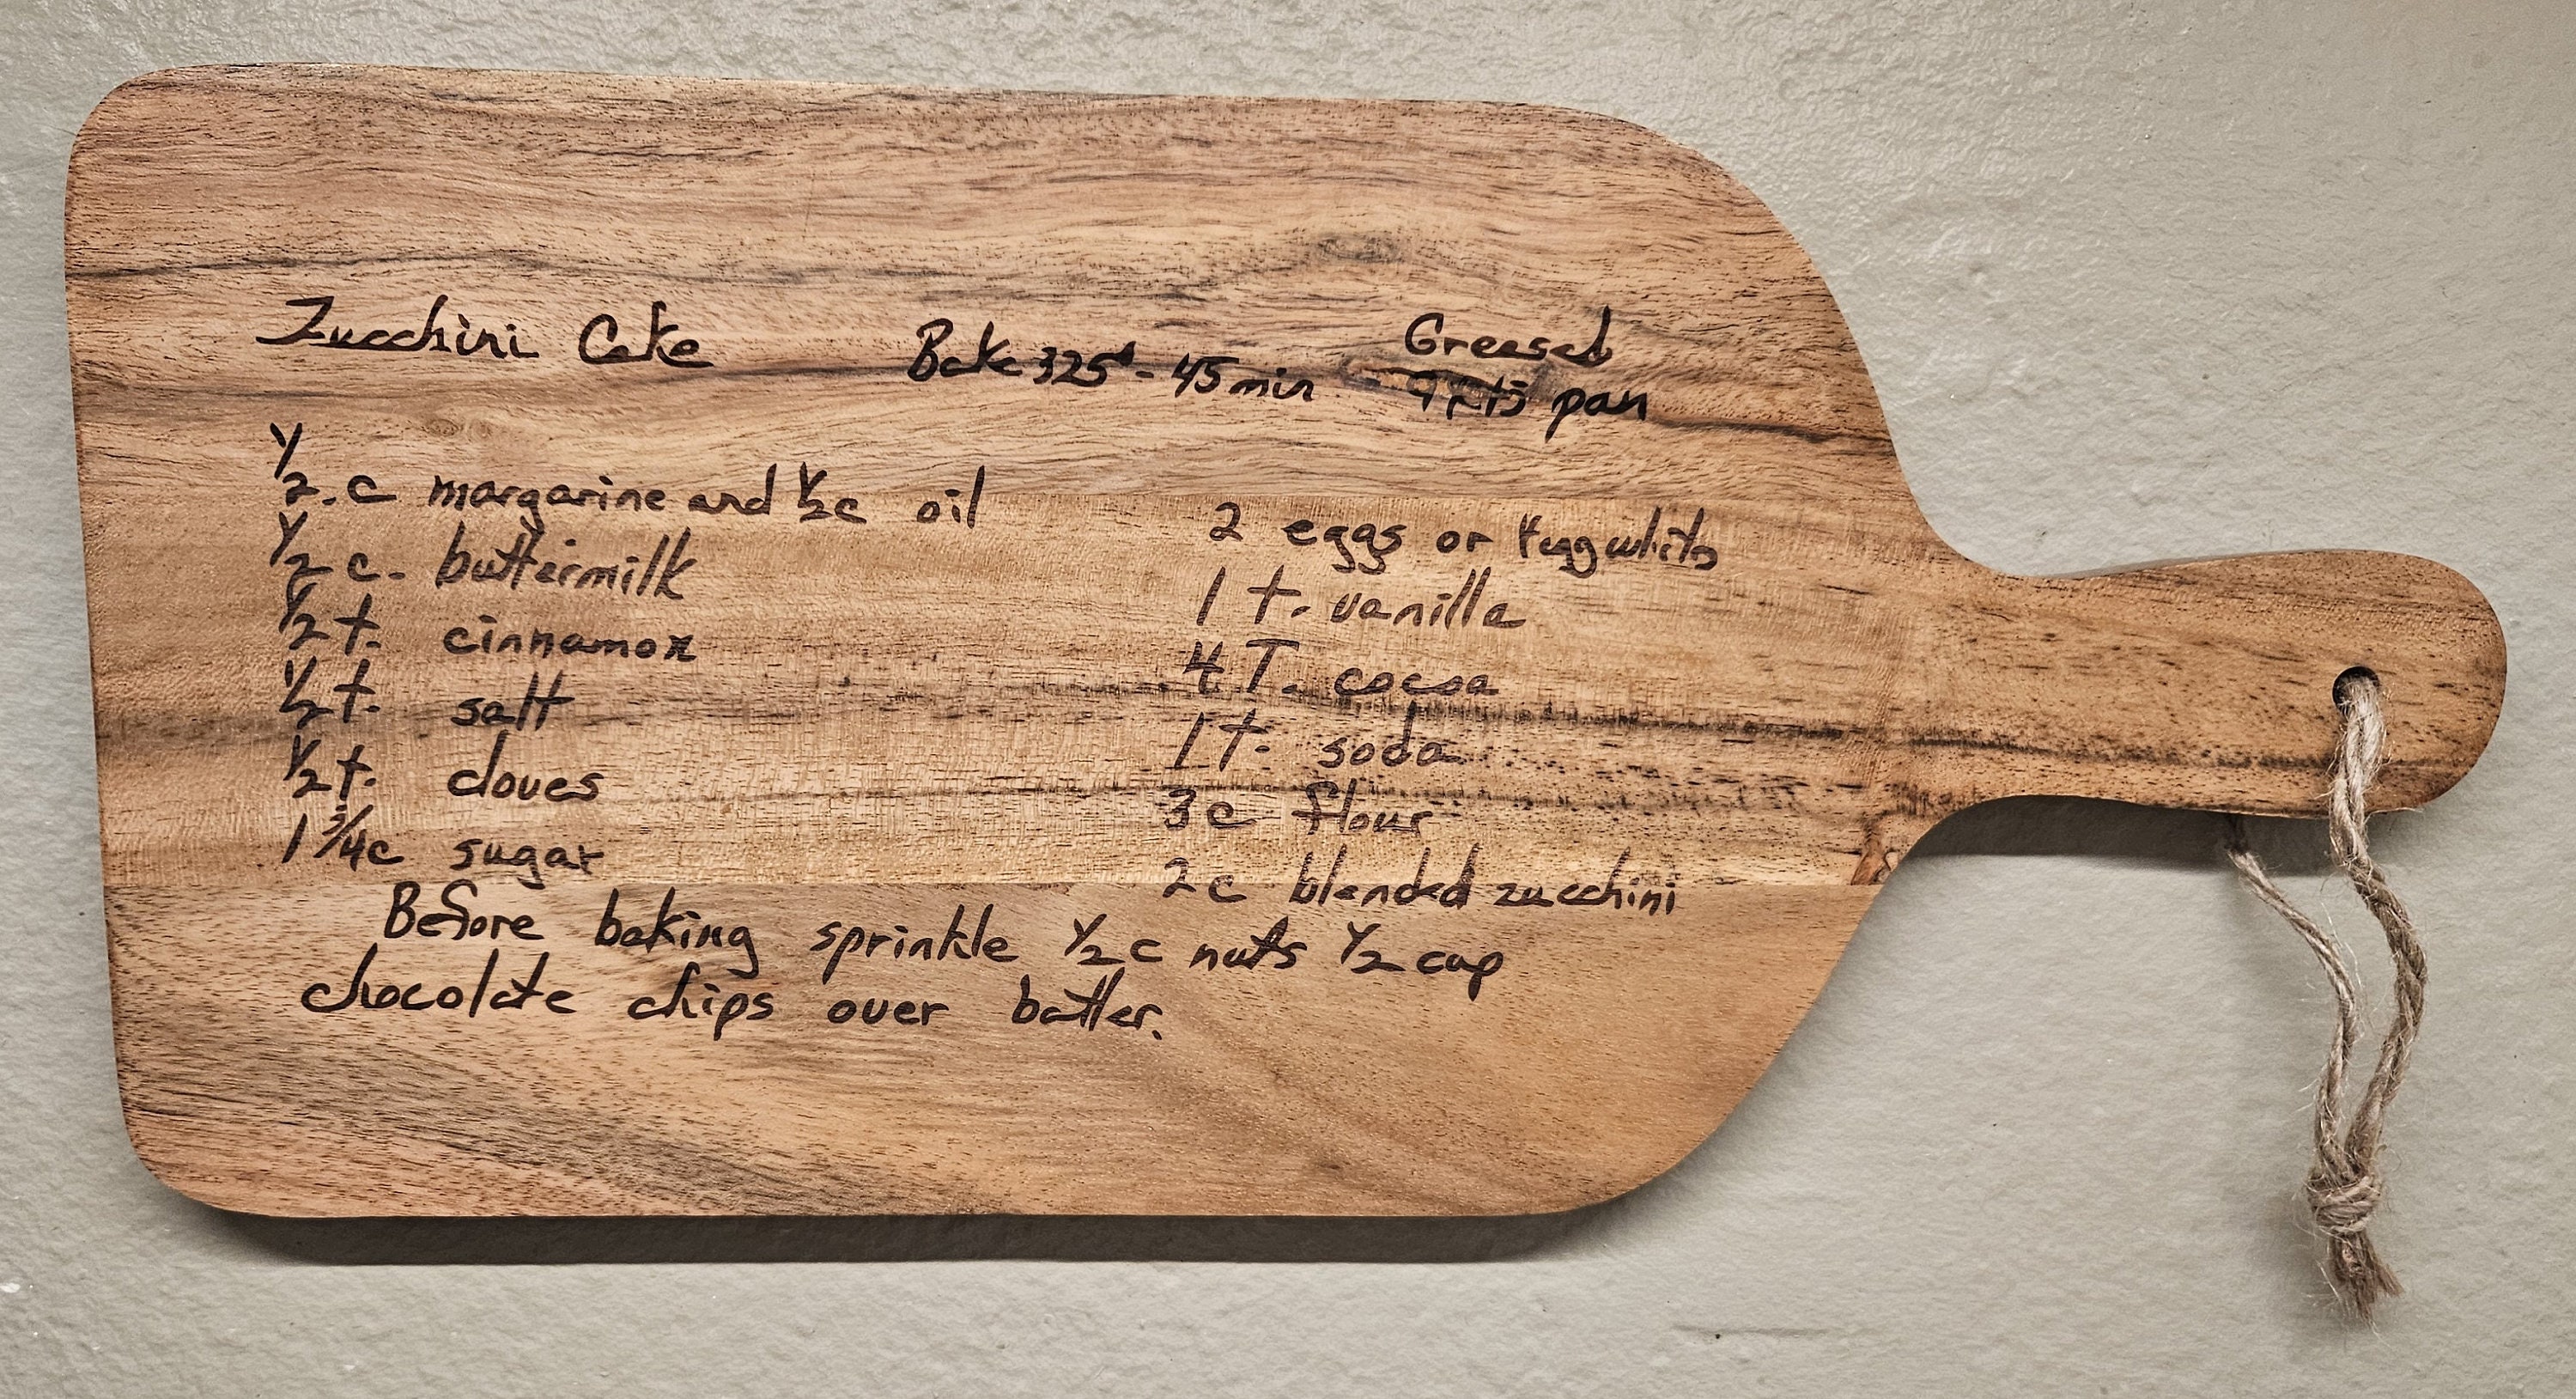 Zucchini Cake Bake 325° - 45 min Greased
9x13 pan
1/2 . c margarine and 1/2 c oil
1/2 c. buttermilk
1/2 t. cinnamon
1/2 t. salt
1/2 t. cloves
1 3/4 c sugar
2 eggs or 4 egg whites
1 t. vanilla
4 T. cocoa
1 t. soda
3 c flour
2 c blended zucchini
Before baking sprinkle 1/2 c nuts 1/2 cup
chocolate chips over batter.